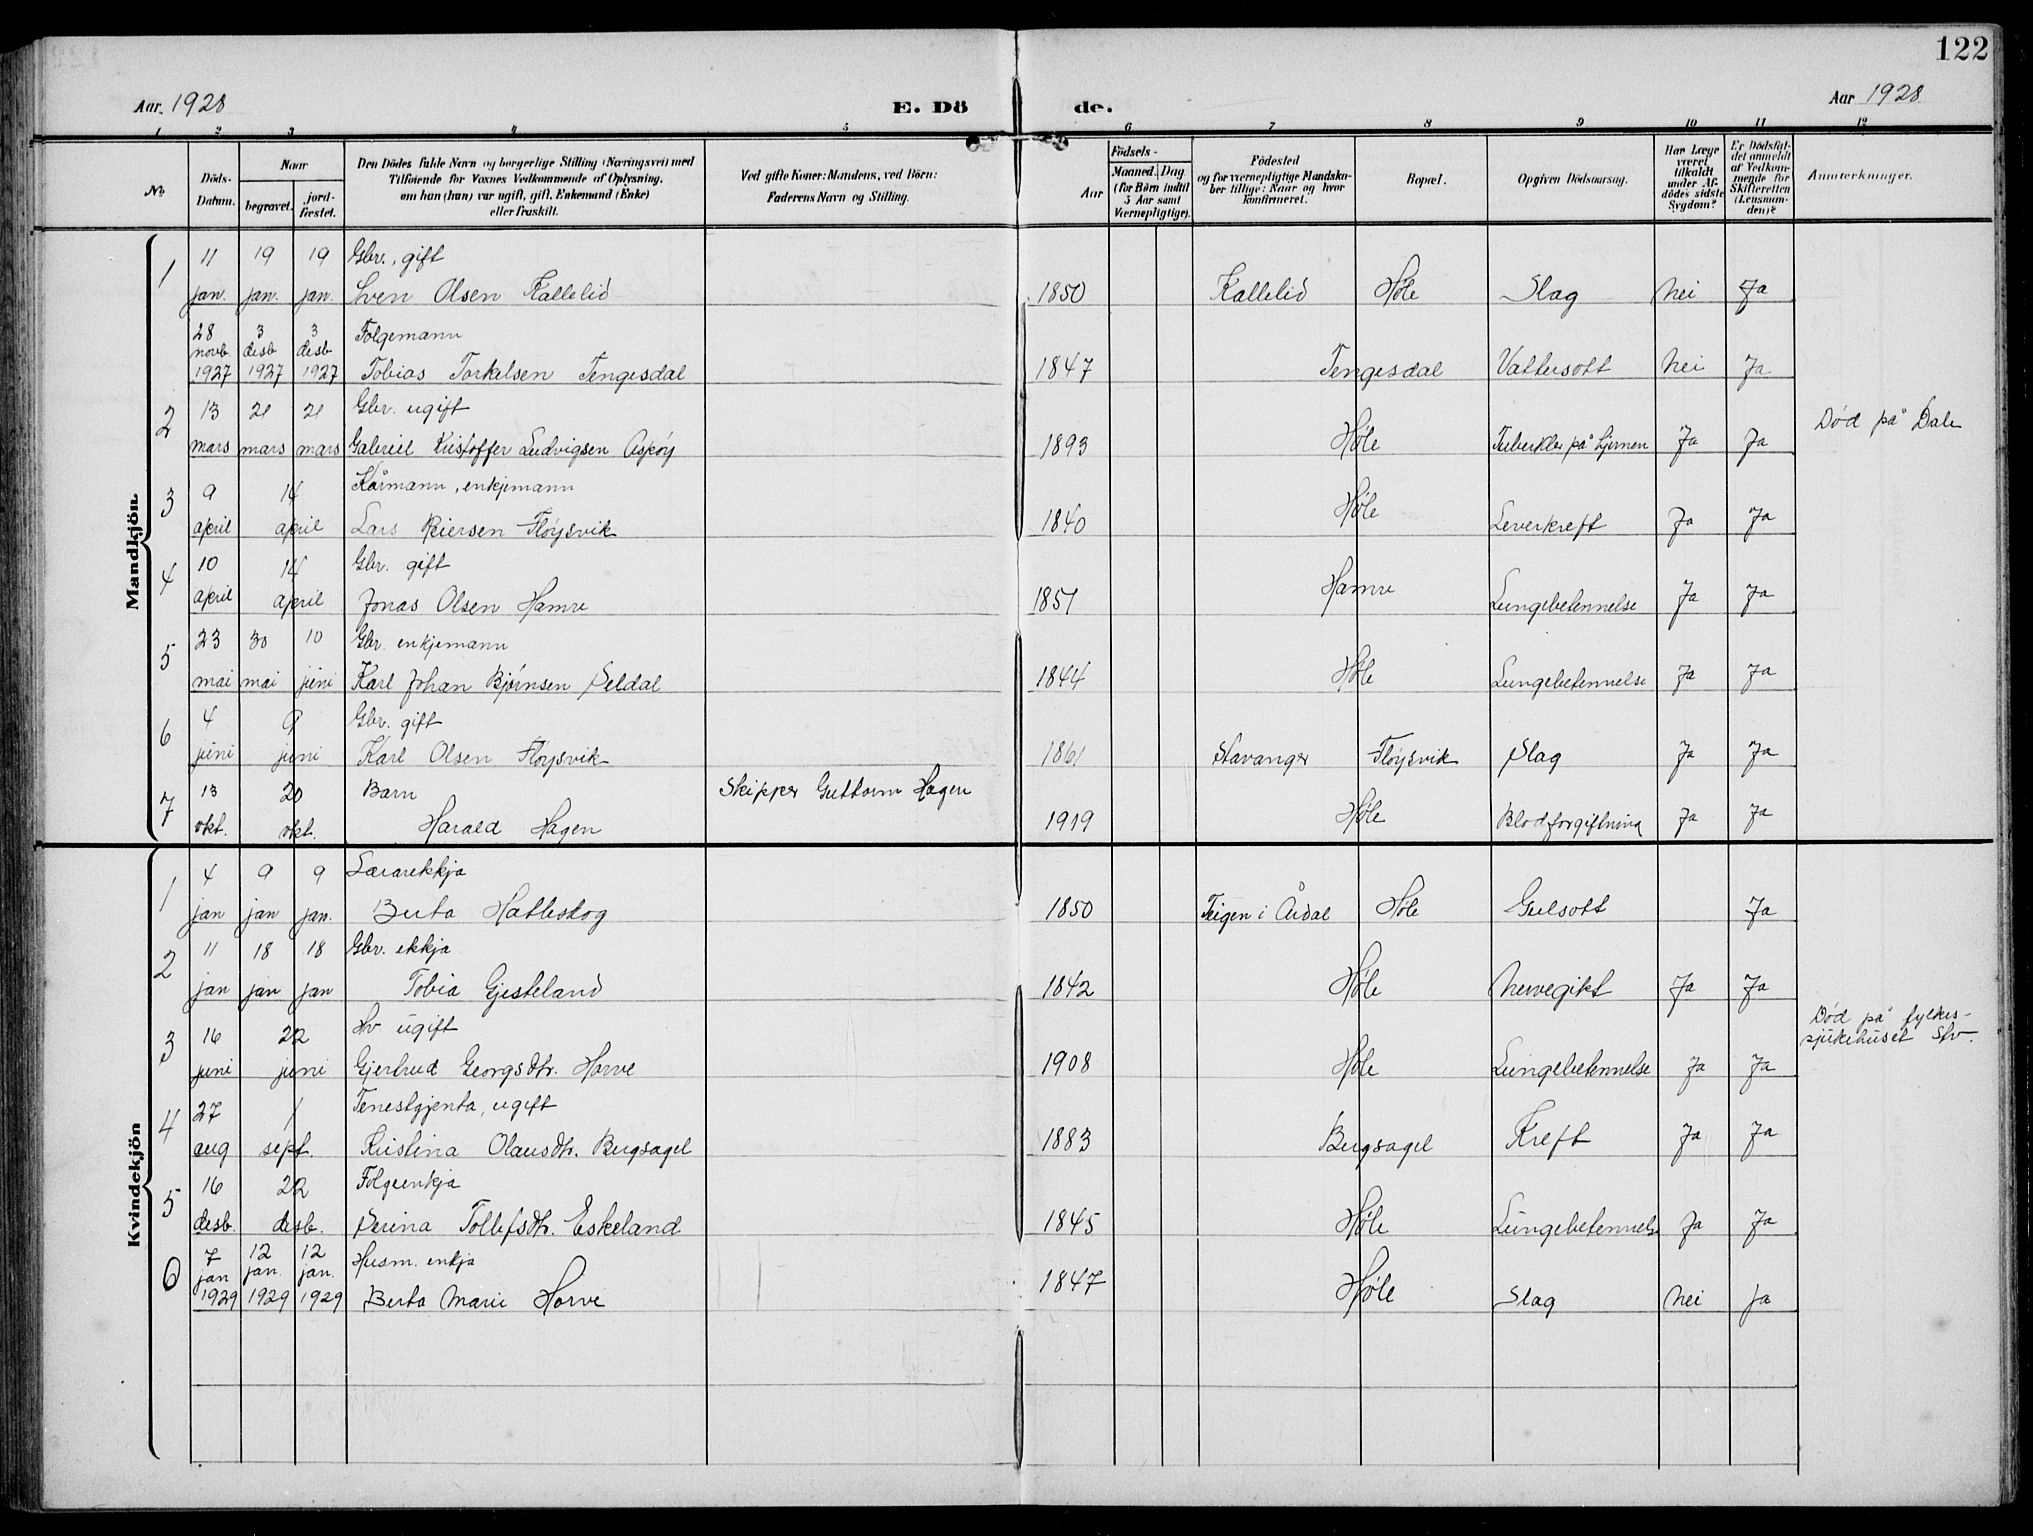 122
Aar 1928 E. Dö de. Aar 1928
1 2 3 4 5 6 7 8 9 10 11 12
No.
Döds-Datum.
Naar
begravet.
jord-fæstet.
Den Dödes fulde Navn og borgerlige Stilling (Næringsvei) med
Tilföiende för Voxnes Vedkommende af Oplysning,
om han (hun) var ugift, gift, Enkemand (Enke)
eller fraskilt.
Ved gifte Koner: Mandens, ved Börn:
Faderens Navn og Stilling.
Födsels-
Aar
Maaned. Dag.
(for Börn indtil
5 Aar samt
Værnepligtige).
Födested
og for værnepligtige Mandska-
ber tillige: Naar og hvor
konfirmeret.
Bopæl.
Opgiven Dödsaarsag.
Har Læge
været
tilkaldt
under Af-
dödes sidste
Sygdom?
Er Dödsfal-
det anmeldt
af Vedkom-
mende for
Skifteretten
(Lensman-
den)?
Anmerkninger.
Mandkjön.
1 11 19 19 Gbr., gift
jan. jan. jan. Sven Olsen Kallelid 1850 Kallelid Høle Slag Nei Ja
28 3 3 Folgemann
novb. desb. desb.
1927 1927 1927 Tobias Torkelsen Tengesdal 1847 Tengesdal Vattersott Nei Ja
2 13 21 21 Gbr. ugift Død på Dale
mars mars mars Gabriel Kristoffer Ludvigsen Aspøy 1893 Høle Tuberkler på hjernen Ja Ja
3 9 14 Kårmann, enkjemann
april april Lars Reiersen Fløysvik 1840 Høle Leverkreft Ja Ja
4 10 14 Gbr. gift
april april Jonas Olsen Hamre 1851 Hamre Lungebetennelse Ja Ja
5 23 30 10 Gbr. enkjemann
mai mai juni Karl Johan Bjørnsen Seldal 1844 Høle Lungebetennelse Ja Ja
6 4 9 Gbr. gift
juni juni Karl Olsen Fløysvik 1861 Stavanger Fløysvik Slag Ja Ja
7 13 20 Barn Skipper Guttorm Hagen
okt. okt. Harald Hagen 1919 Høle Blodforgiftning Ja Ja
Kvindekjön
1 4 9 9 Lærarekkja
jan jan jan. Berta Hatleskog 1850 Teigen i Årdal Høle Gulsott Ja
2 11 18 18 Gbr. ekkja
jan jan jan Tobia Gjesteland 1842 Høle Nervegikt Ja Ja
3 16 22 Hv ugift Død på fylkes-
sjukehuset Stv.
juni juni Gjertrud Georgsdtr. Horve 1908 Høle Lungebetennelse Ja Ja
4 27 1 Tenestgjenta, ugift
aug sept. Kristina Olausdtr. Bergsagel 1883 Bergsagel Kreft Ja Ja
5 16 22 Folgeenkja
desb. desb. Serina Tollefsdtr. Eskeland 1845 Høle Lungebetennelse Ja Ja
6 7 12 12 Husm. enkja
jan jan. jan.
1929 1929 1929 Berta Marie Horve 1847 Høle Slag Nei Ja